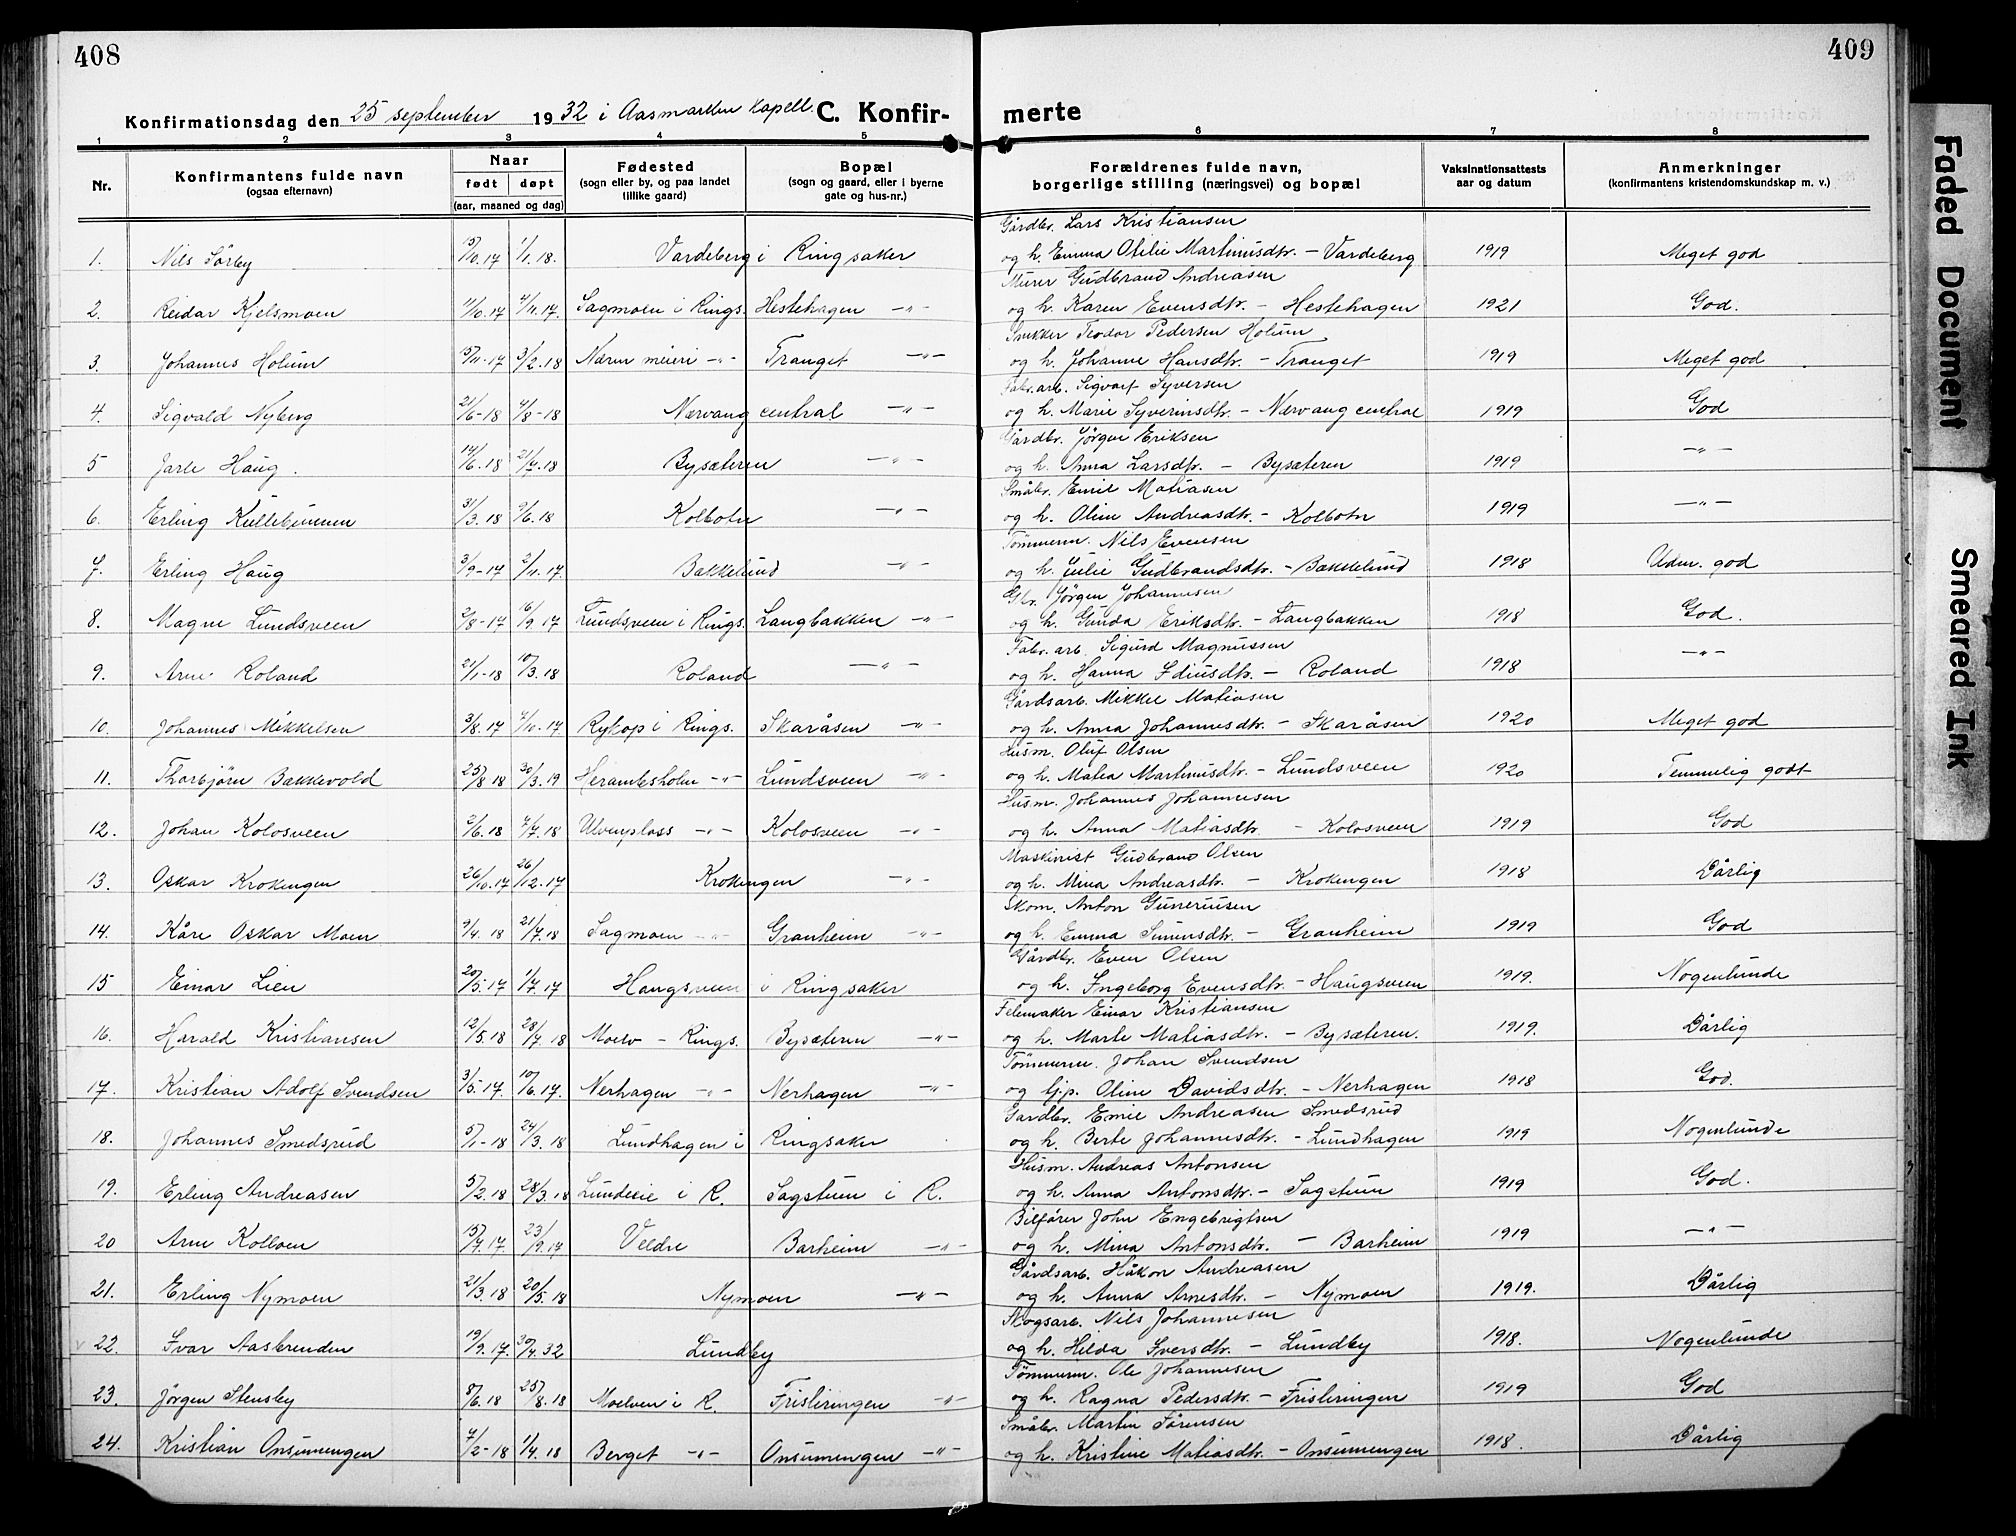 408
409
Konfirmationsdag den 25 september 1932 i Aasmarken Kapell C. Konfir-
merte
1 2 3 4 5 6 7 8
Nr. Konfirmantens fulde navn (ogsaa efternavn) Naar født døpt (aar, maaned og dag) Fødested (sogn eller by, og paa landet tillike gaard) Bopæl (sogn og gaard, eller i byerne gate og hus-nr.) Forældrenes fulde navn, borgerlige stilling (næringsvei) og bopæl Vaksinationsattests aar og datum Anmerkninger (konfirmantens kristendomskundskap m. v.)
Gårdbr. Lars Kristiansen
1. Nils Sörby 15/10.17 1/1.18. Vardeberg i Ringsaker og h. Emma Otilie Martinusdtr. - Vardeberg 1919 Meget god
Murer Gudbrand Andreasen
2. Reidar Kjelsmoen 11/10.17 4/11.17. Sagmoen i Rings. Hestehagen -"- og h. Karen Evensdtr. - Hestehagen 1921 God.
Snikker Teodor Pedersen Holum
3. Johannes Holum 15/11-17 3/2.18 Nærum meieri -"- Tranget -"- og h. Johanne Hansdtr. - Tranget 1919 Meget god
Fabr.arb. Sigvart Syversen
4 Sigvald Nyberg 21/6-18 4/8-18 Nærvang central -"- og h. Marie Syverinsdtr. - Nærvang central 1919 God
Gårdbr. Jörgen Eriksen
5 Jarle Haug. 14/6.18 21/7.18 Bysæteren -"- og h. Anna Larsdtr. - Bysæteren 1919 -"-
Småbr. Emil Matiasen
6. Erling Kullebunnen 31/3.18 9/6.18 Kolbotn -"- og h. Oline Andreasdtr. - Kolbotn 1919 -"-
Tömmerm. Nils Evensen
7. Erling Haug 3/9-17 2/11.17. Bakkelund -"- og h. Julie Gudbrandsdtr. - Bakkelund 1918 Udm. god
Gbr. Jörgen Johannesen
8. Magne Lundsveen 2/8-17 16/9 17 Lundsveen i Rings. Langbakken -"- og h. Gunda Eriksdtr. - Langbakken 1918 God.
Fabr. arb. Sigurd Magnussen
9. Arne Roland 21/1-18 10/3.18 Roland -"- og h. Hanna Ediusdtr. - Roland 1918 -"-
Gårdsarb. Mikkel Matiasen
10. Johannes Mikkelsen 3/8.17 7/10.17 Rykop i Rings. Skaråsen -"- og h. Anna Johannesdtr. - Skaråsen 1920 Meget god
Husm. Oluf Olsen
11. Thorbjörn Bakkevold 25/8 18 30/3.19 Herambsholm -"- Lundsveen -"- og h. Matea Martinusdtr. - Lundsveen 1920 Temmelig godt
Husm. Johannes Johannesen
12. Johan Kolosveen 2/6.18 7/7.18 Ulvenplass -"- Kolosveen -"- og h. Anna Matiasdtr. - Kolosveen 1919 God
Maskinist Gudbrand Olsen
13. Oskar Krokengen 26/10.17 26/12.17 Krokengen -"- og h. Mina Andreasdtr. - Krokengen 1918 Dårlig
Skom. Anton Guneriusen
14. Kåre Oskar Moen 9/4.18 21/7.18 Sagmoen -"- Granheim -"- og h. Emma Simensdtr. - Granheim 1919 God
Gårdbr. Even Olsen
15 Einar Lien 20/5.17 1/7.17 Haugsveen i Ringsaker og h. Ingeborg Evensdtr. - Haugsveen 1919. Nogenlunde
Felemaker Einar Kristiansen
16. Harald Kristiansen 12/5.18 28/7.18 Moelv - Rings. Bysæteren -"- og h. Marte Matiasdtr. - Bysæteren. 1919. Dårlig
Tömmerm. Johan Svendsen
17. Kristian Adolf Svendsen 3/5.17. 10/6.17. Nerhagen -"- Nerhagen -"- og lj.p. Oline Davidsdtr. - Nerhagen 1918 God.
Gårdbr. Emil Andreasen Smedsrud
18. Johannes Smedsrud 5/1-18 24/3.18 Lundhagen i Ringsaker og h. Berte Johannesdtr. - Lundhagen 1919 Nogenlunde
Husm. Andreas Antonsen
19. Erling Andreasen 5/2.18 28/3 18 Lundeeie i R. Sagstuen i R. og h. Anna Antonsdtr. - Sagstuen 1919 God.
Bilförer John Engebrigtsen
20 Arne Kolloen 15/7.17. 23/9.17 Veldre Barheim -"- og h. Mina Antonsdtr. - Barheim 1919 -"-
Gårdsarb. Håkon Andreasen
21. Erling Nymoen 21/3.18 20/5.18 Nymoen -"- og h. Anna Arnesdtr. - Nymoen 1919. Dårlig
Skogsarb. Nils Johannesen
22. Ivar Aasbrenden 19/9.17. 30/4.32 Lundby og h. Hilda Iversdtr. - Lundby 1918. Nogenlunde
Tömmerm. Ole Johannesen
23. Jörgen Stensby 8/6.18 25/8.18 Moelven i R. Frisliringen -"- og h. Ragna Pedersdtr. - Frisliringen 1919 God
Småbr. Martin Sörensen
24. Kristian Onsumengen 7/2-18 1/4.18 Berget -"- Onsumengen -"- og h. Kristine Matiasdtr. - Onsumengen 1918. Dårlig
Faded Document
Smeared Ink